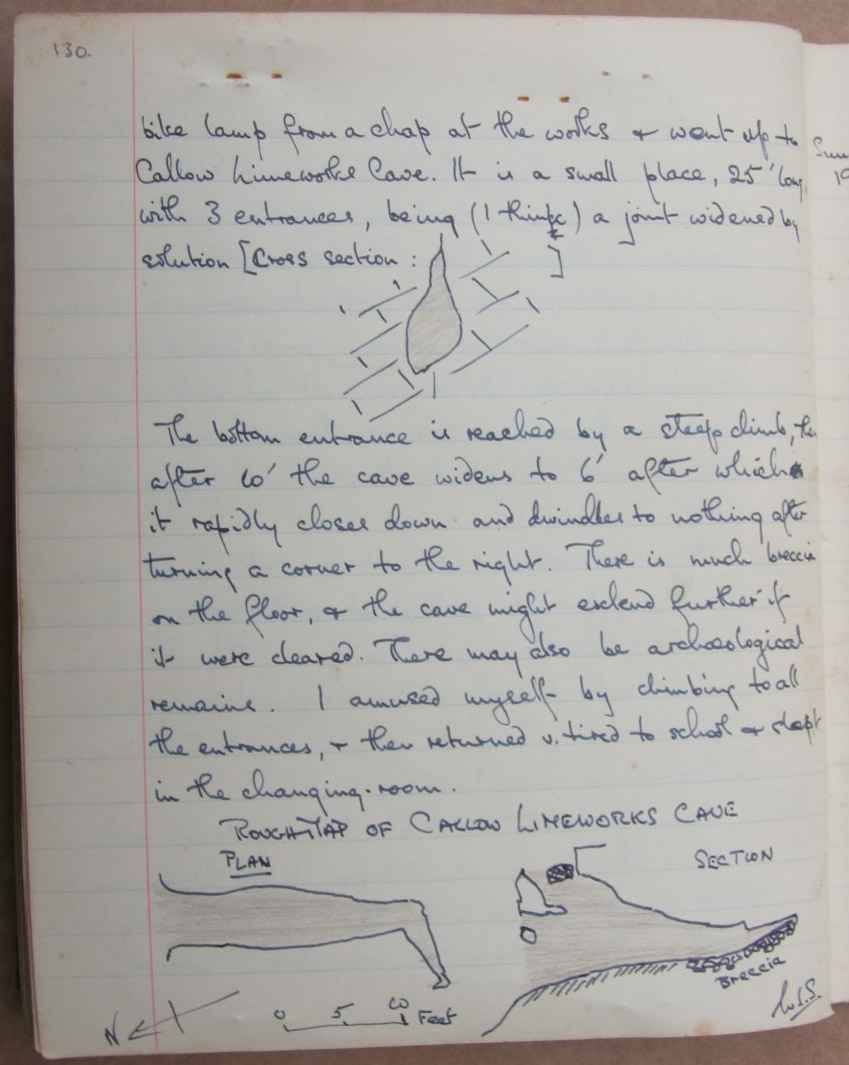 130.
bike lamp from a chap at the works & went up to
Callow Limeworks Cave. It is a small place, 25' long,
with 3 entrances, being (I think) a joint widened by
solution [Cross section : ]
The bottom entrance is reached by a steep climb, then
after 10' the cave widens to 6' after which
it rapidly closes down and dwindles to nothing after
turning a corner to the right. There is much breccia
on the floor, & the cave might extend further if
it were cleared. There may also be archaeological
remains. I amused myself by climbing to all
the entrances, & then returned v. tired to school & slept
in the changing-room.
ROUGH MAP OF CALLOW LIMEWORKS CAVE
PLAN
SECTION
Breccia
N
0 5 10 Feet